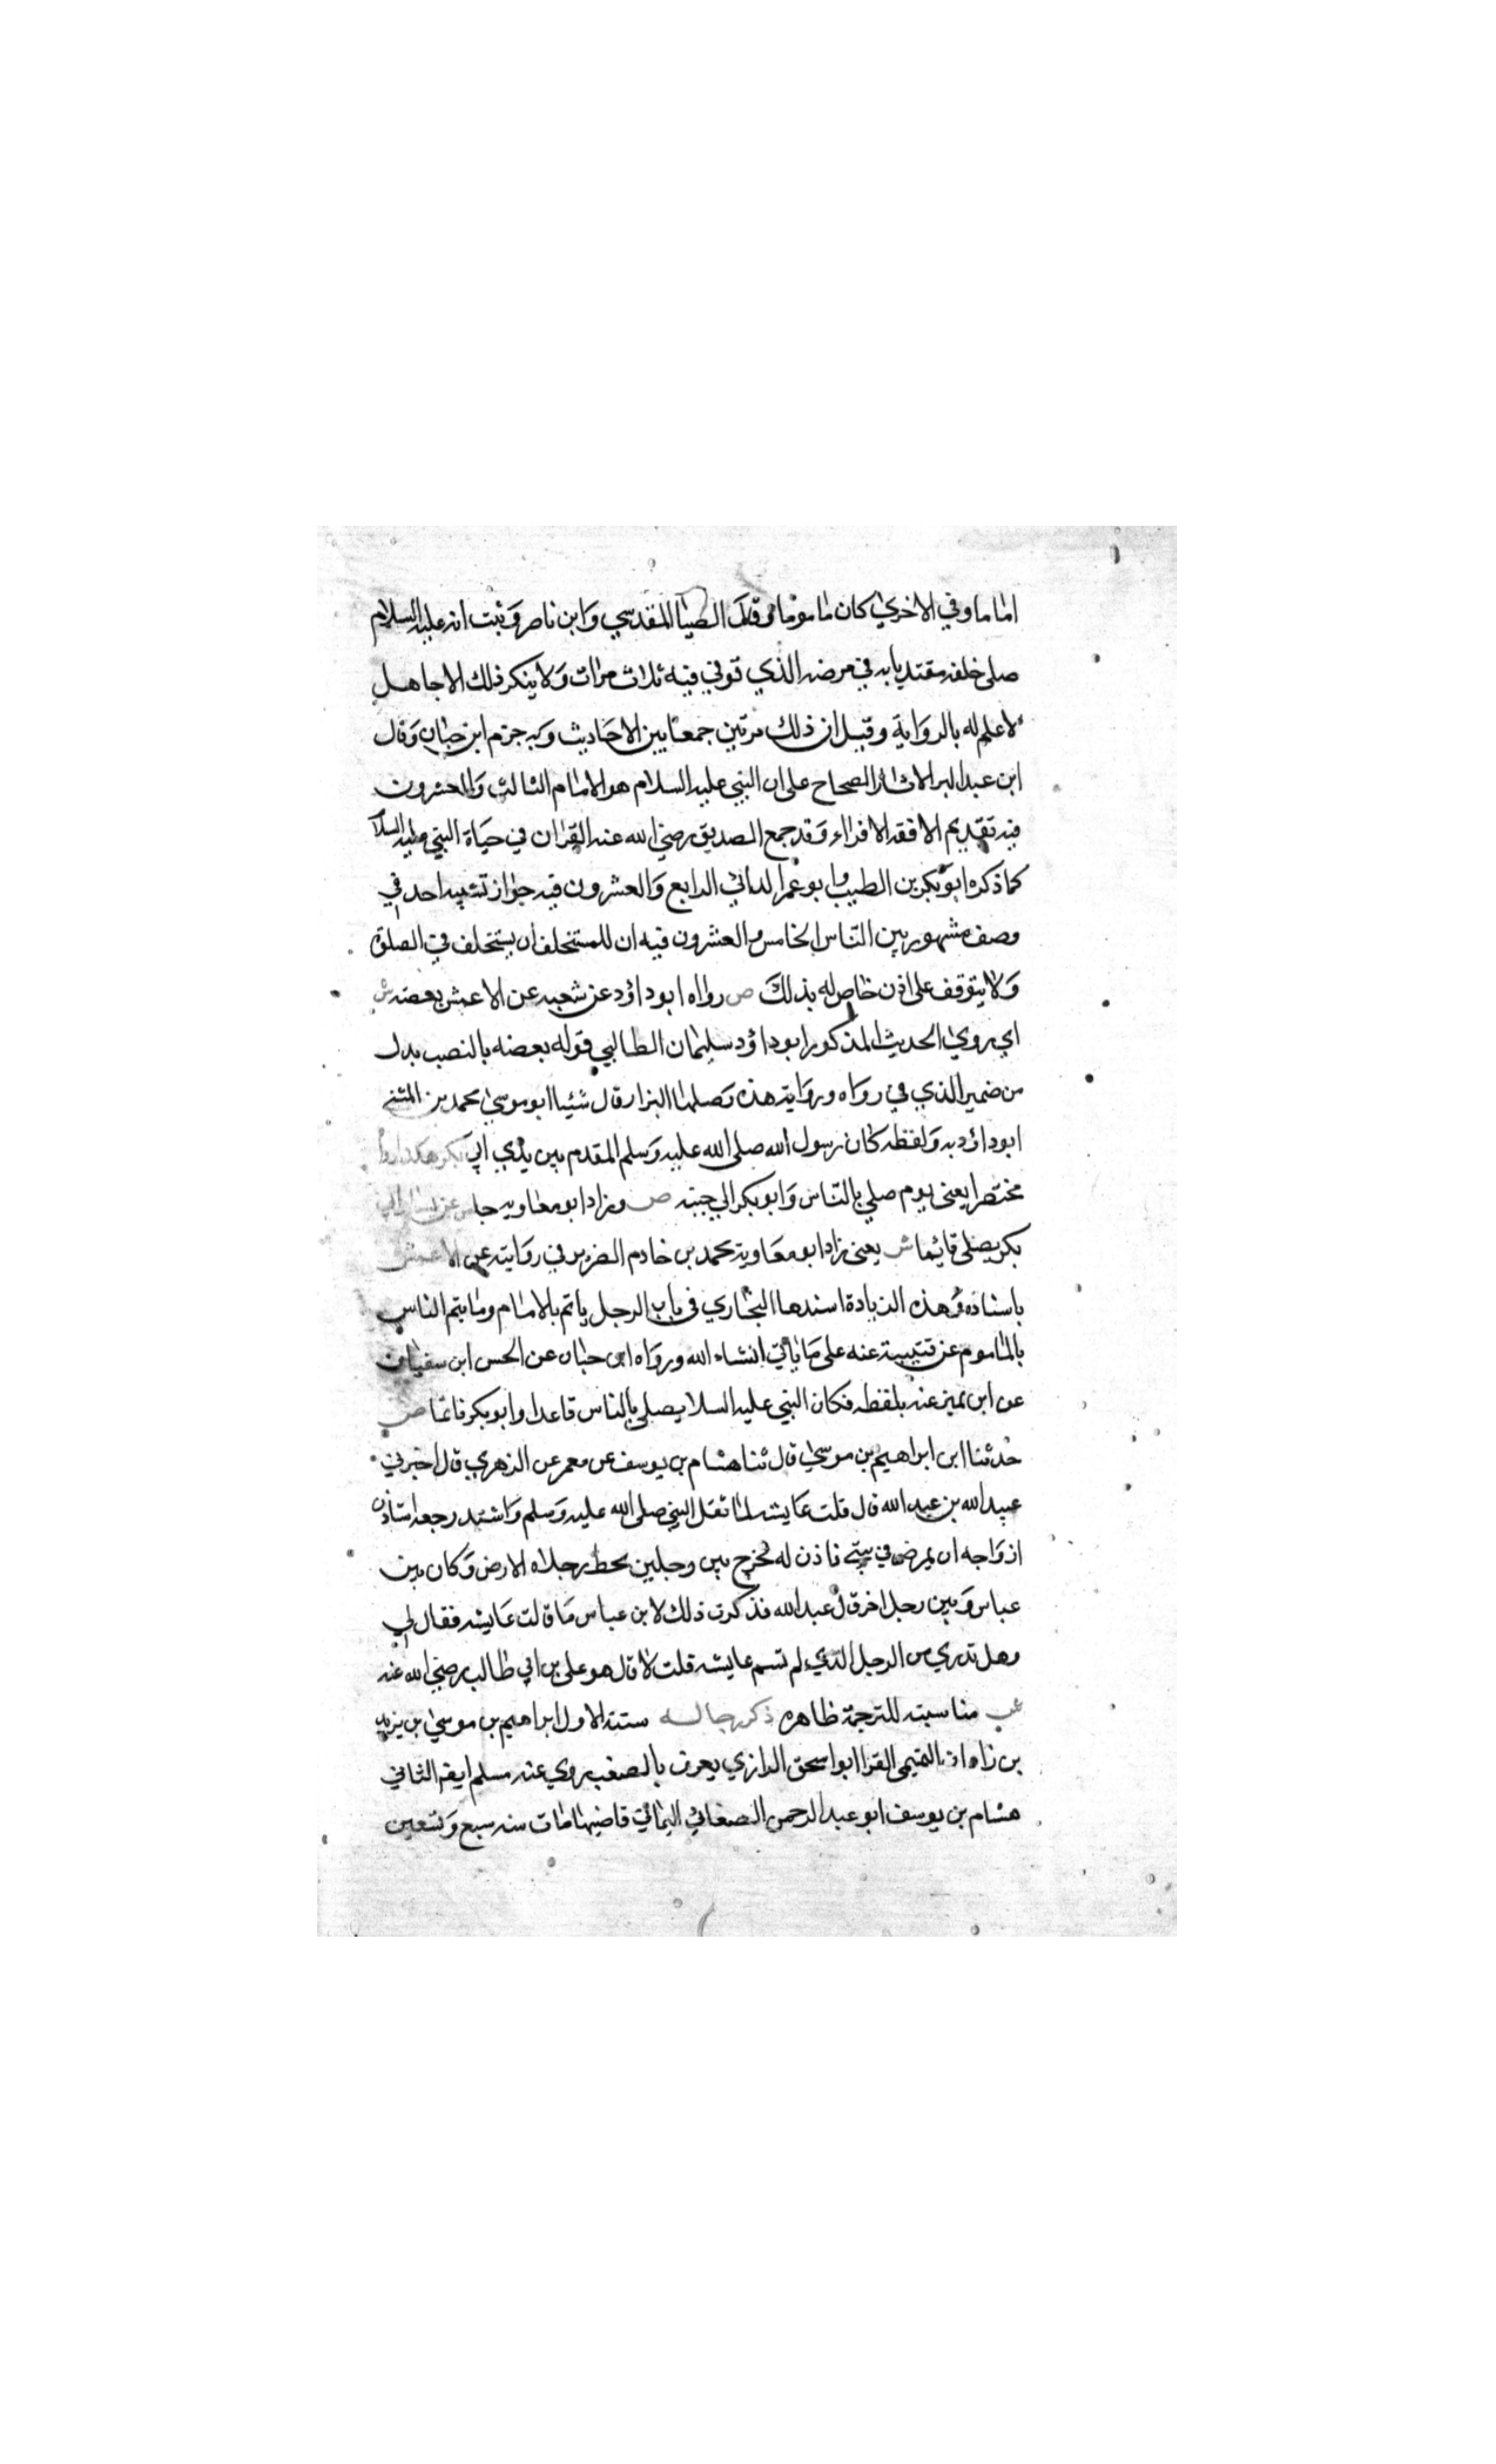 اماما وفي الاخري كان ماموما وقال الضيا المقدسي وابن ناصر وثبت انه عليه السلام
صلى خلفه مقتديا به في مرضه الذي توفي فيه ثلاث مرات ولا ينكر ذلك الا جاهل
لا علم له بالرواية وقيل ان ذلك مرتين جمعا بين الاحاديث وبه جزم ابن حبان وقال
ابن عبد البر الاثار الصحاح على ان النبي عليه السلام هو الامام الثالث والعشرون
فيه تقديم الافقه الاقراء وقد جمع الصديق رضي الله عنه القران في حياة النبي عليه السلا
كما ذكره ابو بكر بن الطيب وابو عمر الداني الرابع والعشرون فيه جواز تشبيه احد في
وصف مشهور بين الناس الخامس والعشرون فيه ان للمستخلف ان يستخلف في الصلوة
ولا يتوقف على اذن خاص له بذلك ص رواه ابو داؤد عن شعبه عن الاعمش بعضه ش
اي روي الحديث المذكور ابو داؤد سليمان الطالبي قوله بعضه بالنصب بدل
من ضمير الذي في رواه ورواية هذه وصلها البزار قال ثنيا ابو موسي محمد بن المثني
ابو داؤد به ولفظه كان رسول الله صلى الله عليه وسلم المقدم بين يدي ابي بكر هكذا رواه
مختصرا يعني يوم صلي بالناس وابو بكر الي جبنه ص وزاد ابو معاويه جلس عن يسار ابي
بكر يصلي قايما ش يعني زاد ابو معاوية محمد بن خادم الضرير في روايته عن الاعمش
باسناده وهذه الزيادة اسندها البخاري في باب الرجل ياتم بالامام وماياتم الناس
بالماموم عن قتيبة عنه على ما ياتي انشاء الله ورواه ابن حبان عن الحسن ابن سفيان
عن ابن نمير عنه بلفظه فكان النبي عليه السلا يصلي بالناس قاعدا وابو بكر قائما ص
حدثنا ابن ابراهيم بن موسي قال ثنا هشام بن يوسف عن معمر عن الزهري قال اخبرني
عبيد الله بن عبد الله قال قلت عايشه لما ثقل النبي صلى الله عليه وسلم واشتد رجعه استاذن
ازواجه ان يمرض في بيتي فاذن له فخرج بين رجلين يخط رجلاه الارض وكان بين
عباس وبين رجل اخر قال عبد الله فذكرت ذلك لابن عباس ما قالت عايشه فقال لي
وهل تدري من الرجل الذي لم تسم عايشه قلت لا قال هو علي بن ابي طالب رضي الله عنه
مناسبته للترجمة ظاهره ذكر رجاله ستة الاول ابراهيم بن موسي بن يزيد
بن زاه اذ التميمي القرا ابو اسحق الرازي يعرف بالصغير روي عنه مسلم ايضا الثاني
هشام بن يوسف ابو عبد الرحمن الصغاني اليماني قاضيها مات سنه سبع وتسعين